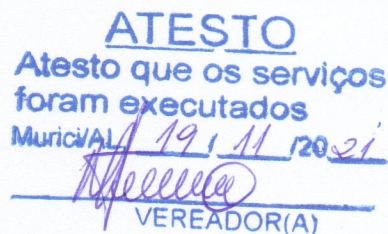 ATESTO
Atesto que os serviços
foram executados
Murici/AL 19 / 11 /2021
VEREADOR(A)